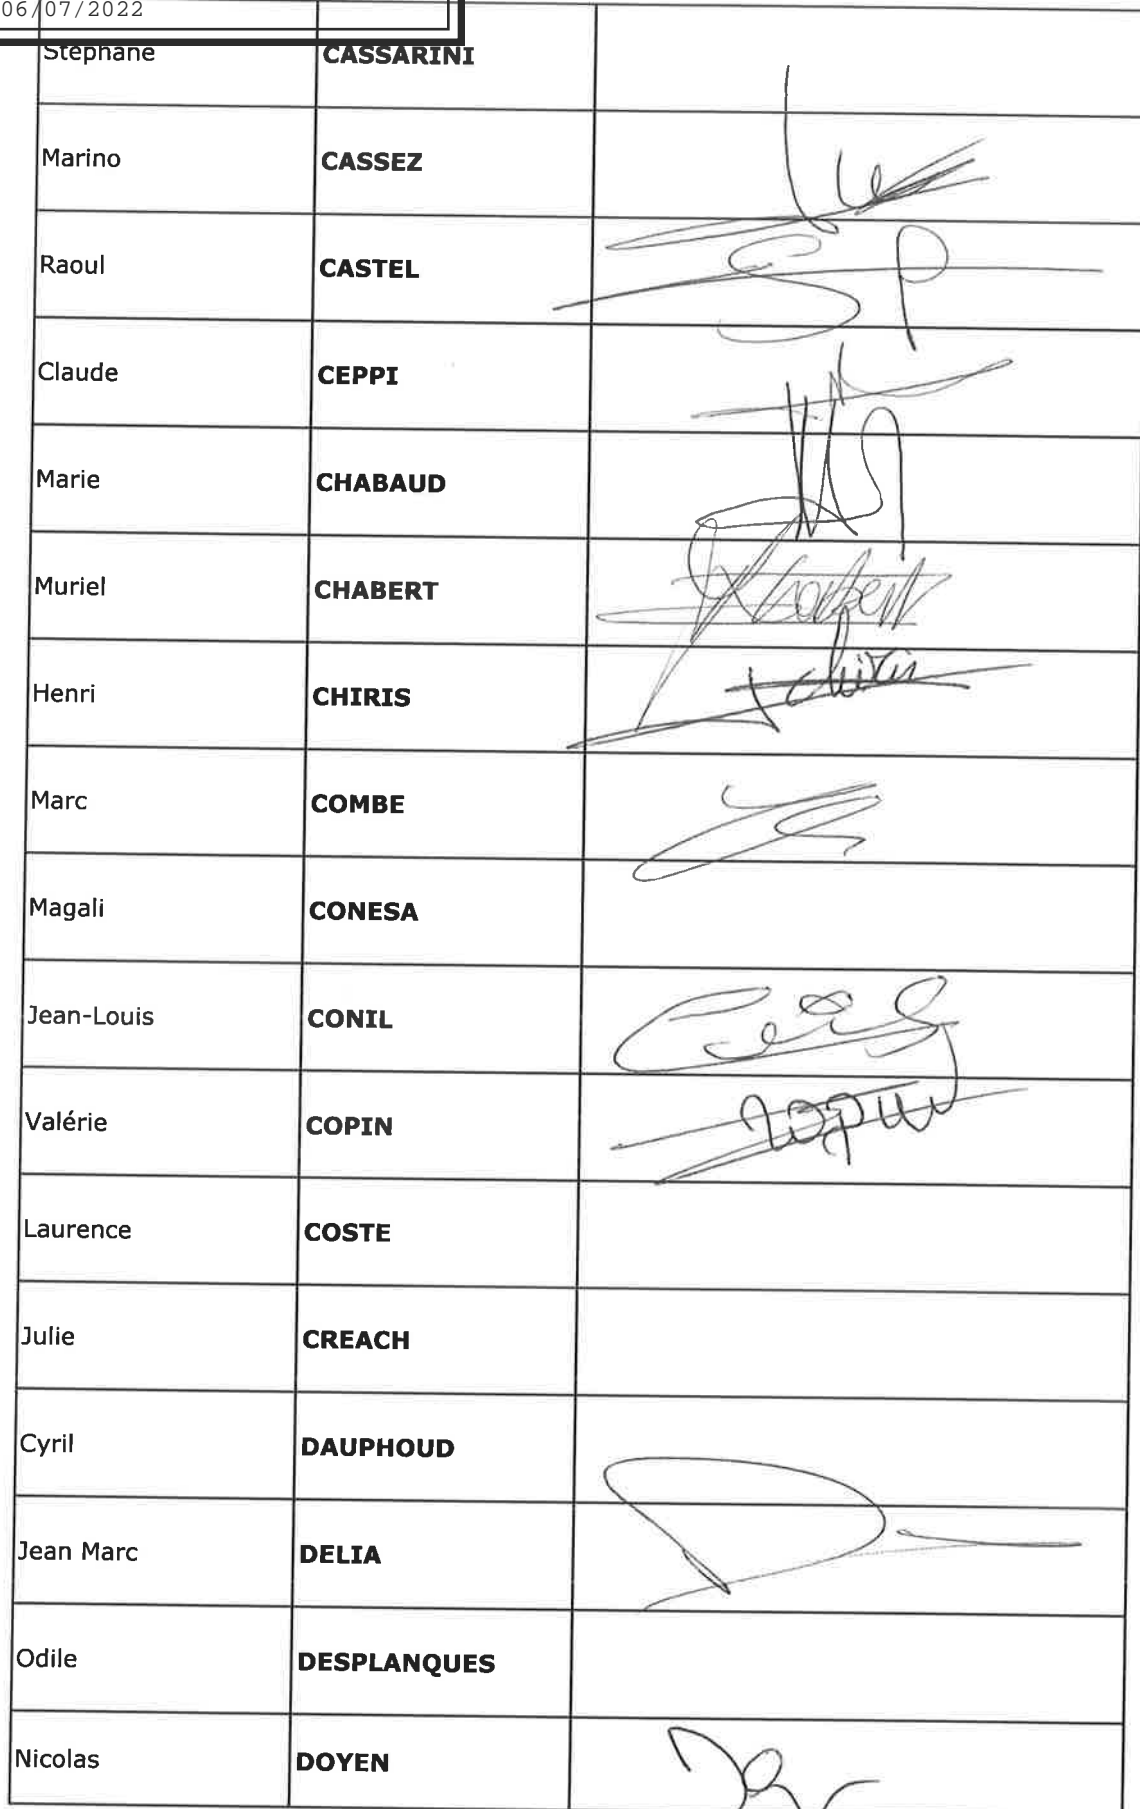 06/07/2022
Stéphane CASSARINI
Marino CASSEZ
Raoul CASTEL
Claude CEPPI
Marie CHABAUD
Muriel CHABERT
Chabert
Henri CHIRIS
chiris
Marc COMBE
Magali CONESA
Jean-Louis CONIL
Valérie COPIN
Copin
Laurence COSTE
Julie CREACH
Cyril DAUPHOUD
Jean Marc DELIA
Odile DESPLANQUES
Nicolas DOYEN